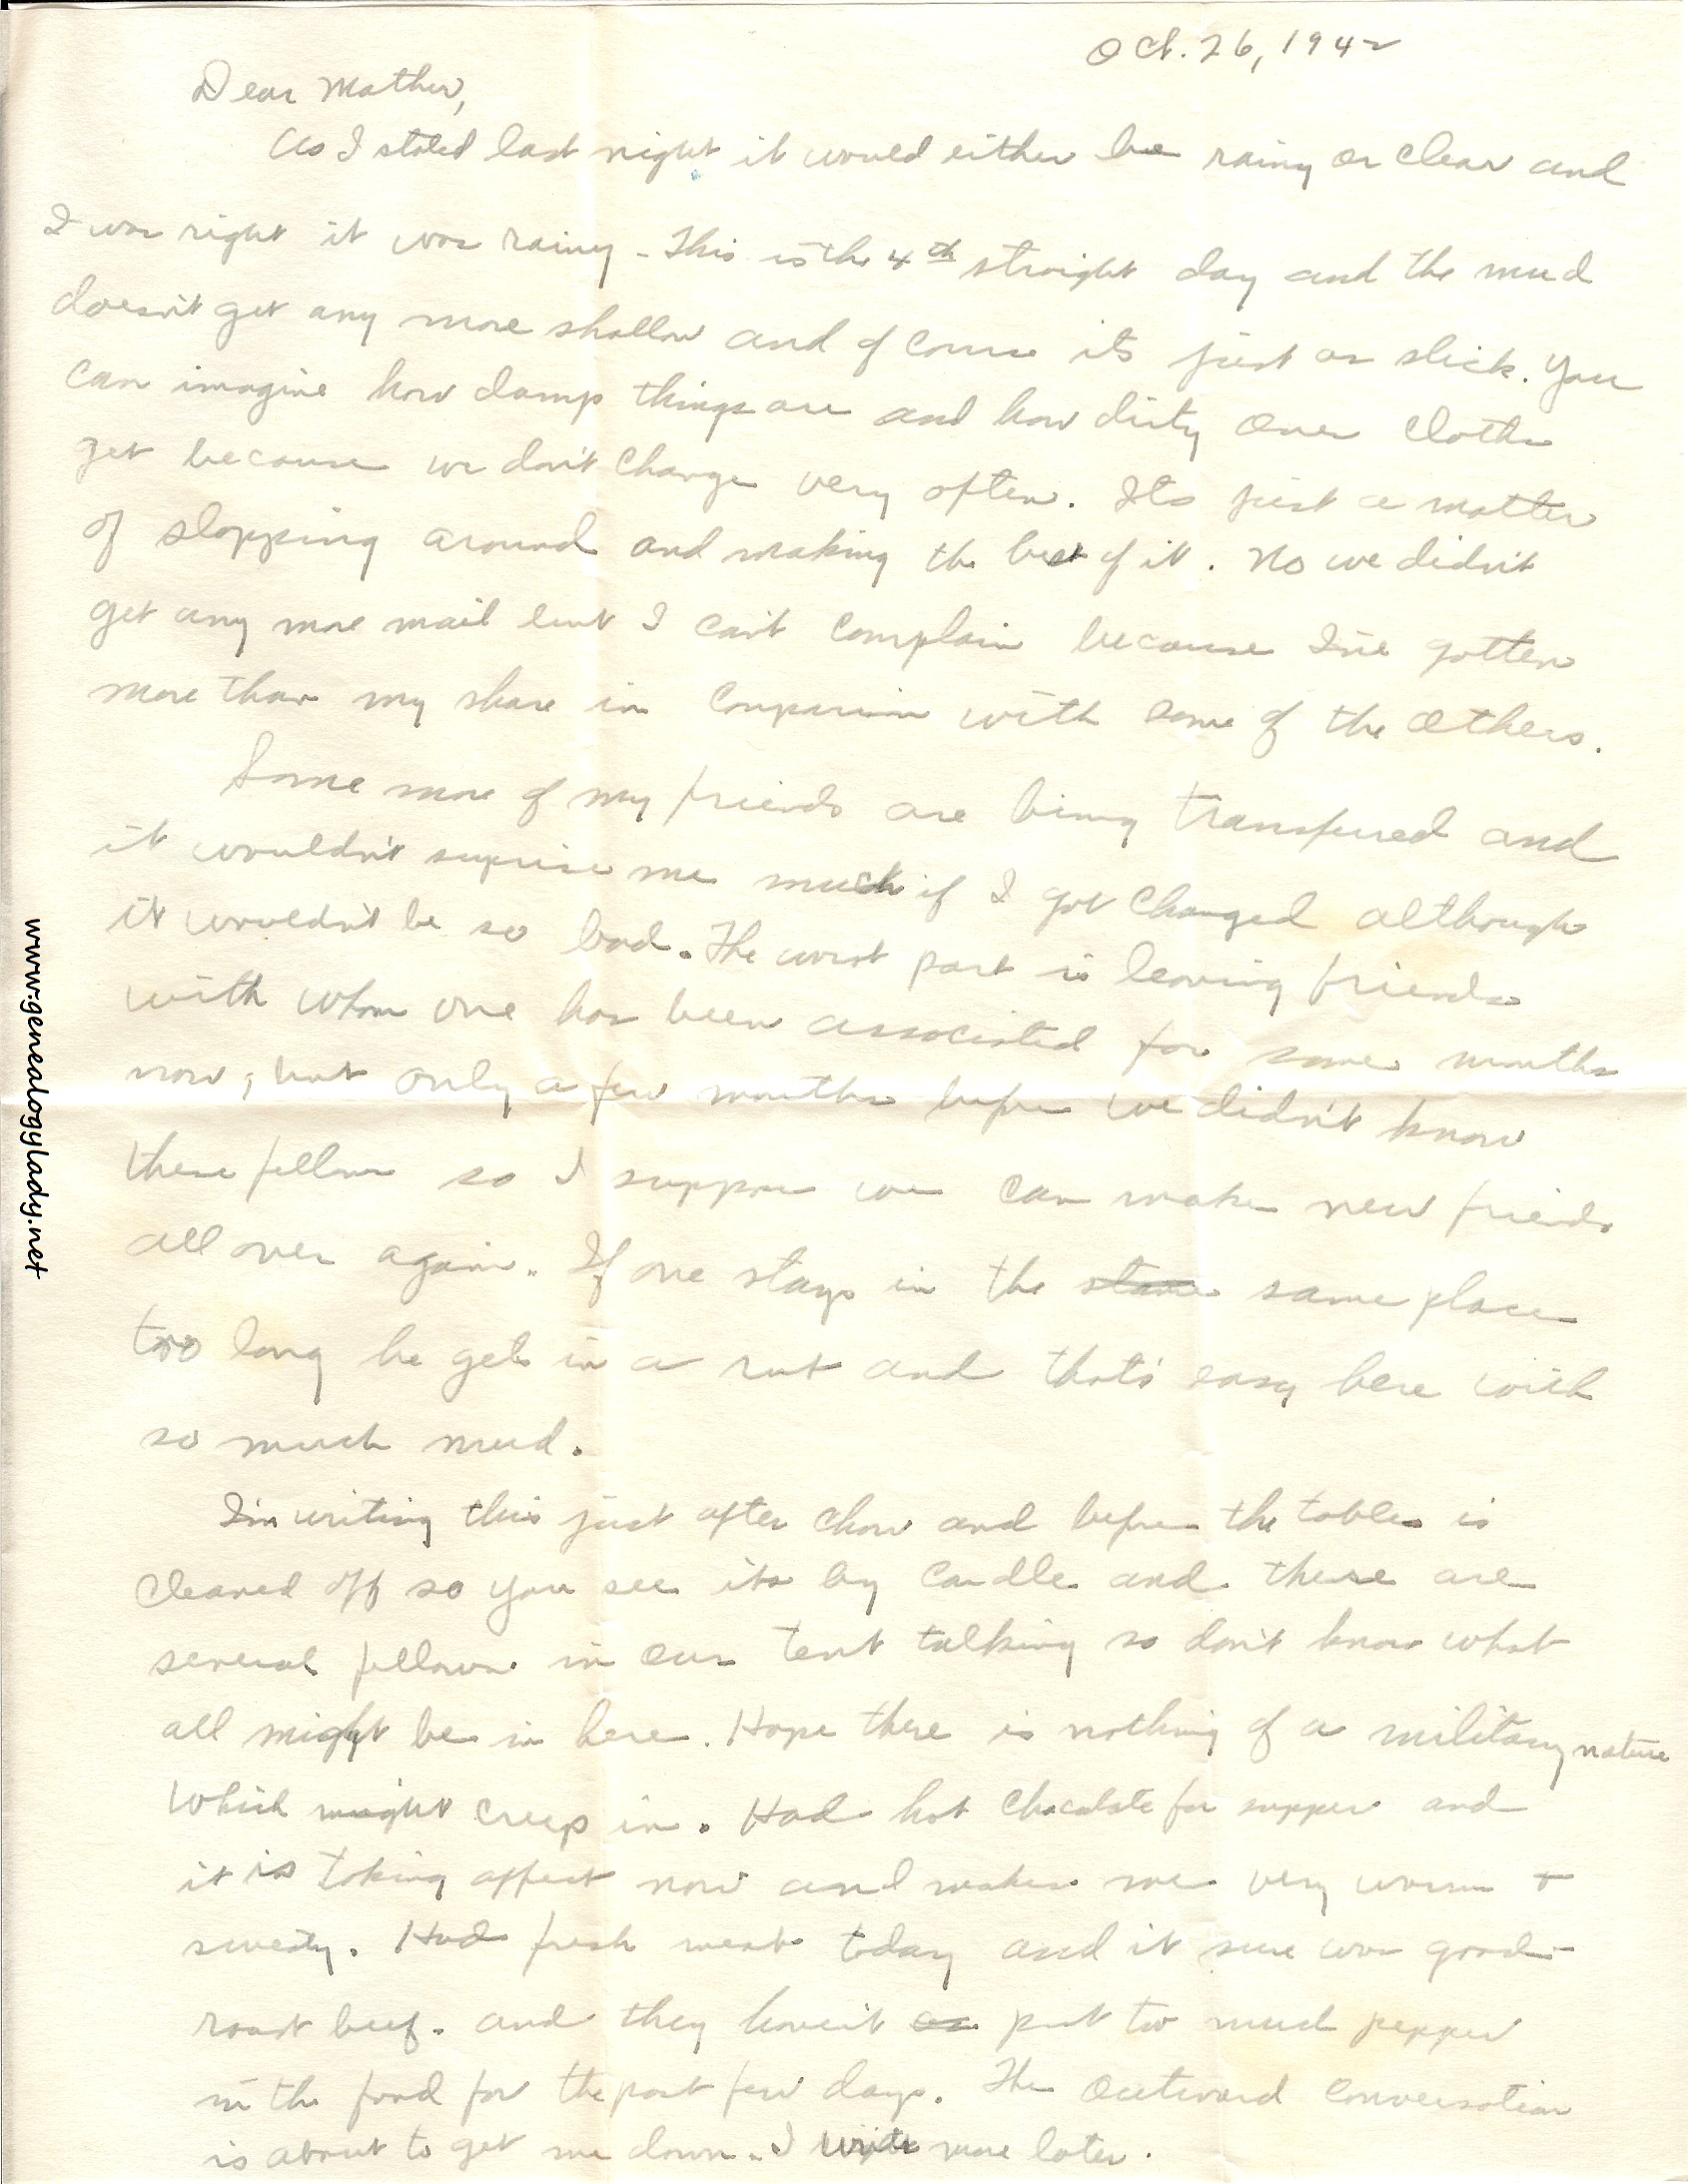 Oct. 26, 1942
Dear Mother,
As I stated last night it would either be rainy or clear and
I was right it was rainy - This is the 4th straight day and the mud
doesn't get any more shallow and of course its just as slick. You
can imagine how damp things are and how dirty our clothes
get because we don't change very often. Its just a matter
of slopping around and making the best of it. No we didn't
get any more mail but I can't complain because I've gotten
more than my share in comparison with some of the others.
Some more of my friends are being transfured and
it wouldn't suprise me much if I got changed although
it wouldn't be so bad. The worst part is leaving friends
with whom one has been associated for some months
now, but only a few months before we didn't know
these fellows so I suppose we can make new friends
all over again. If one stays in the same place
too long he gets in a rut and that's easy here with
so much mud.
I'm writing this just after chow and before the tables is
cleared off so you see its by candle and there are
several fellows in our tent talking so don't know what
all might be in here. Hope there is nothing of a military nature
which might creep in. Had hot chocolate for supper and
it is taking affect now and makes me very warm +
sweaty. Had fresh meat today and it sure was good -
roast beef. and they haven't put too much pepper
in the food for the past few days. The outward conversation
is about to get me down. I write more later.
www.genealogylady.net